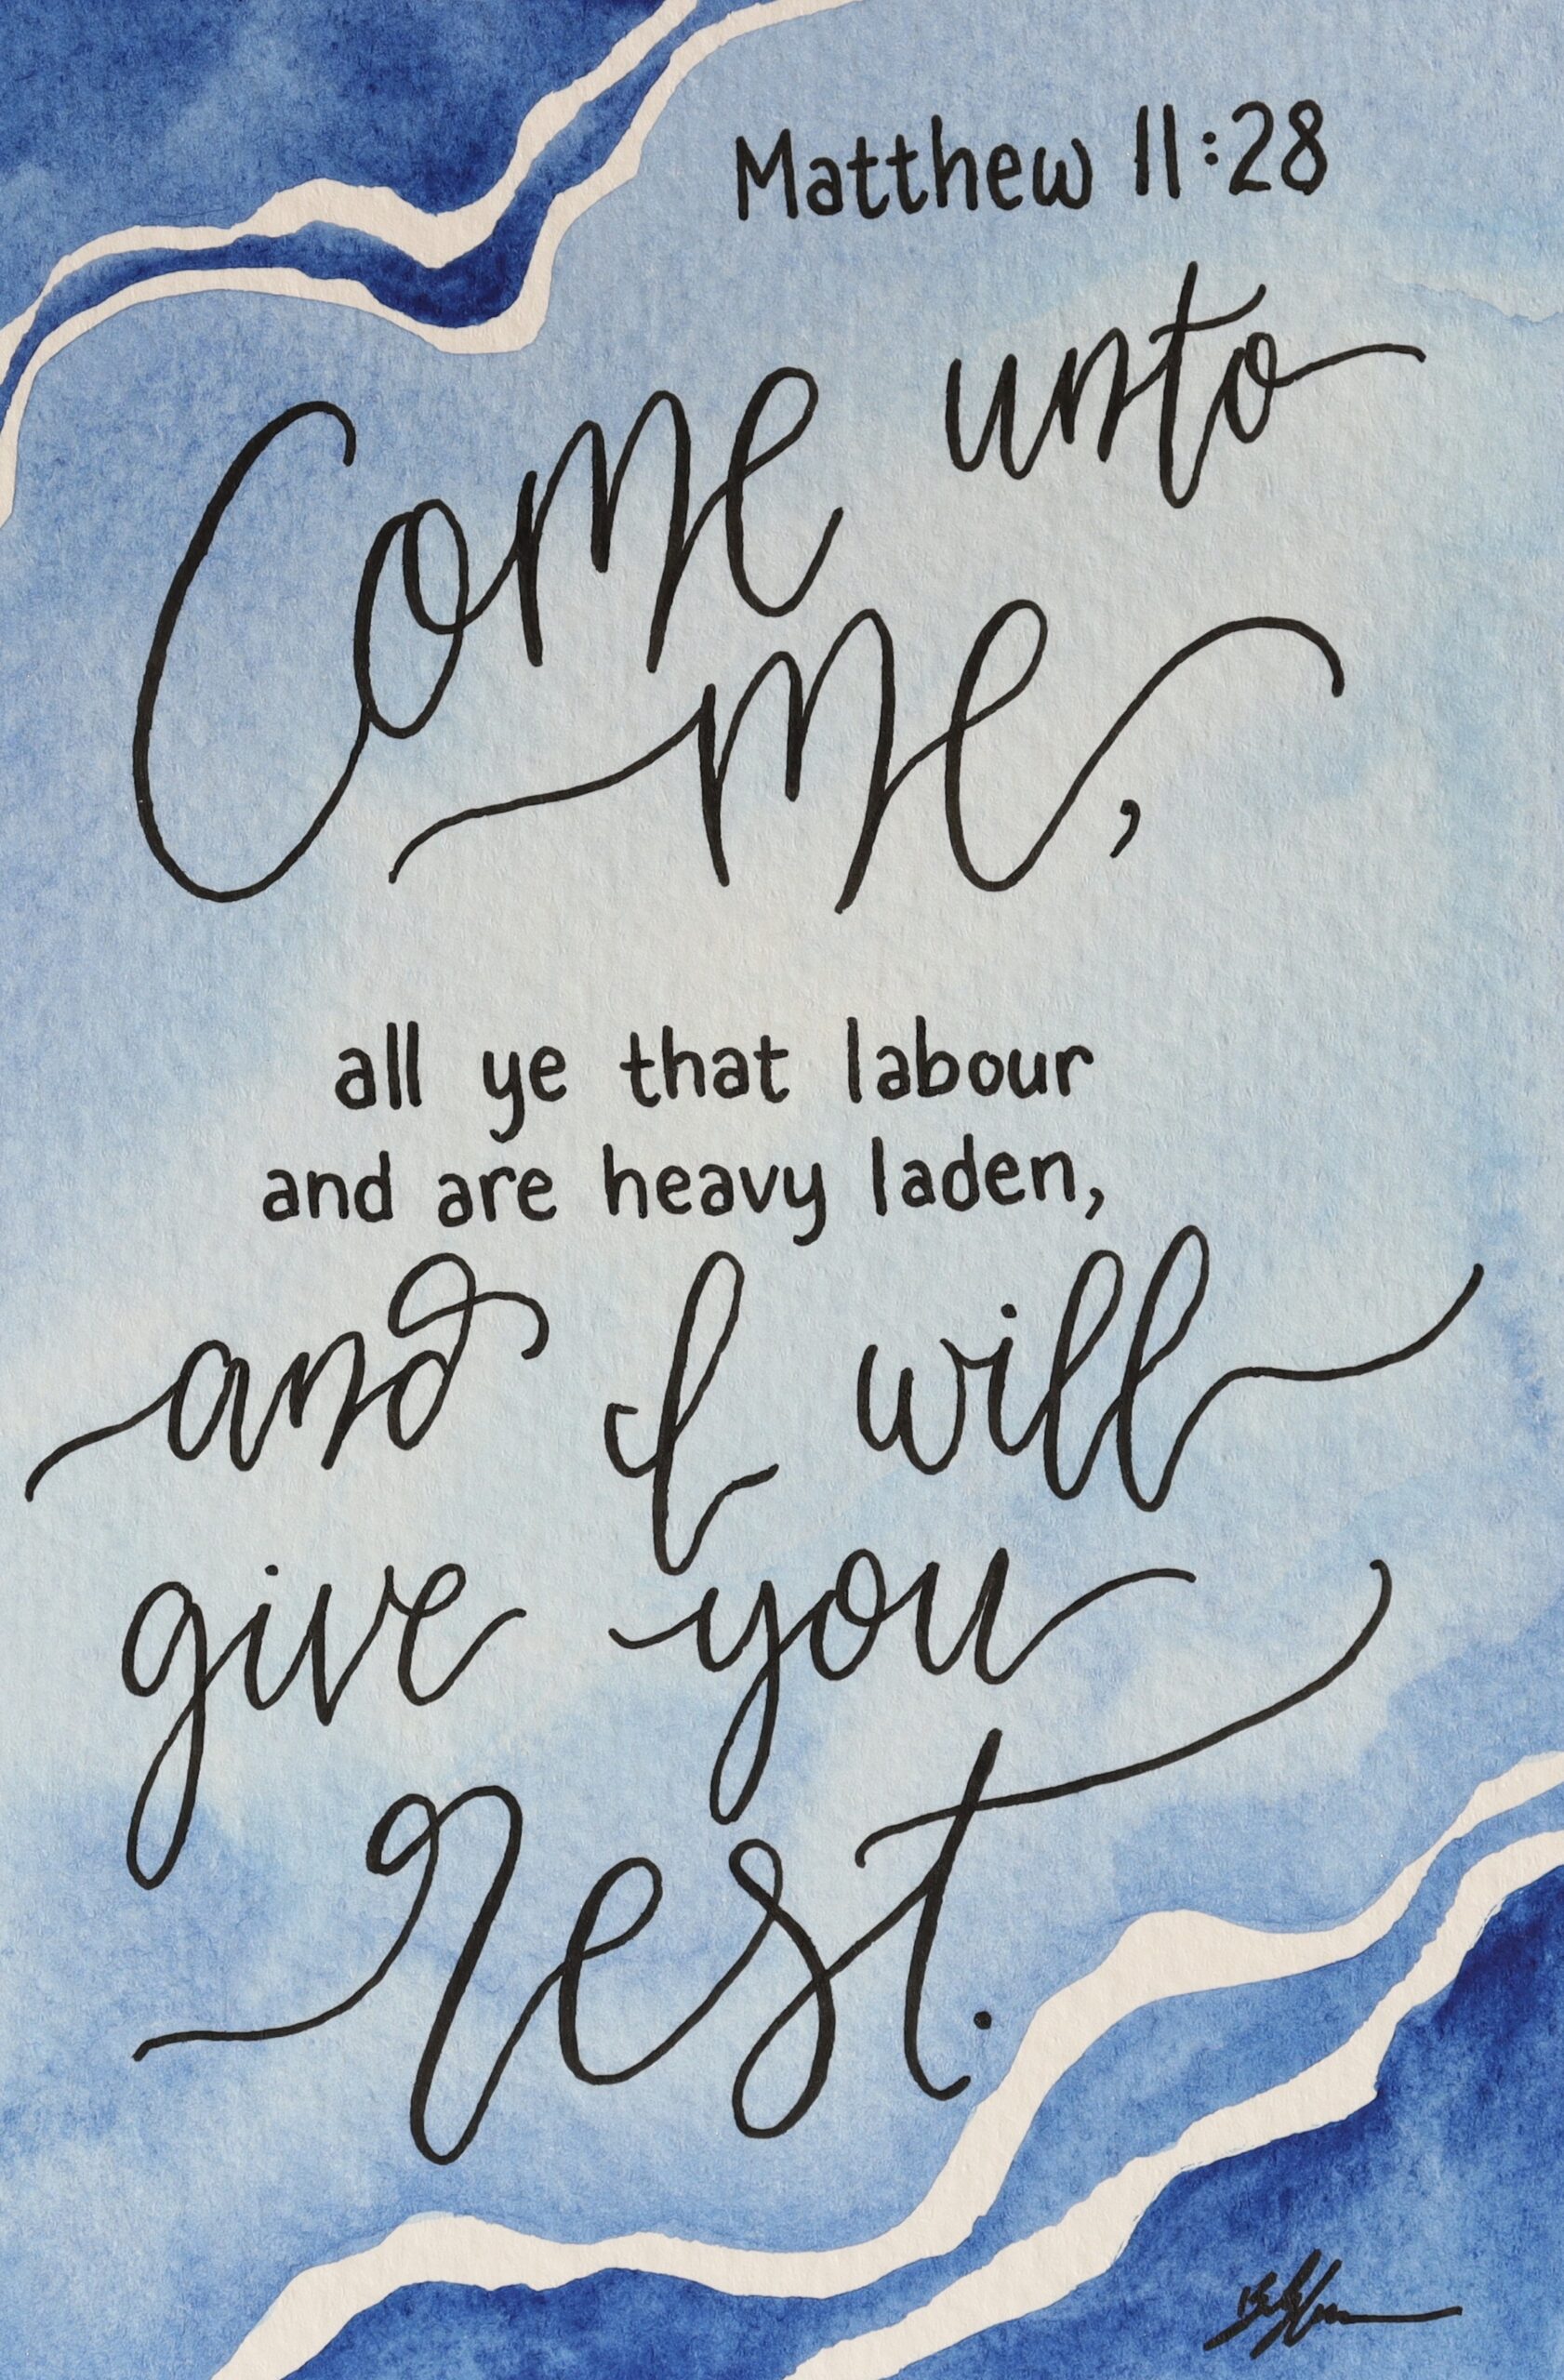 Matthew 11:28
Come unto
me,
all ye that labour
and are heavy laden,
and I will
give you
rest.